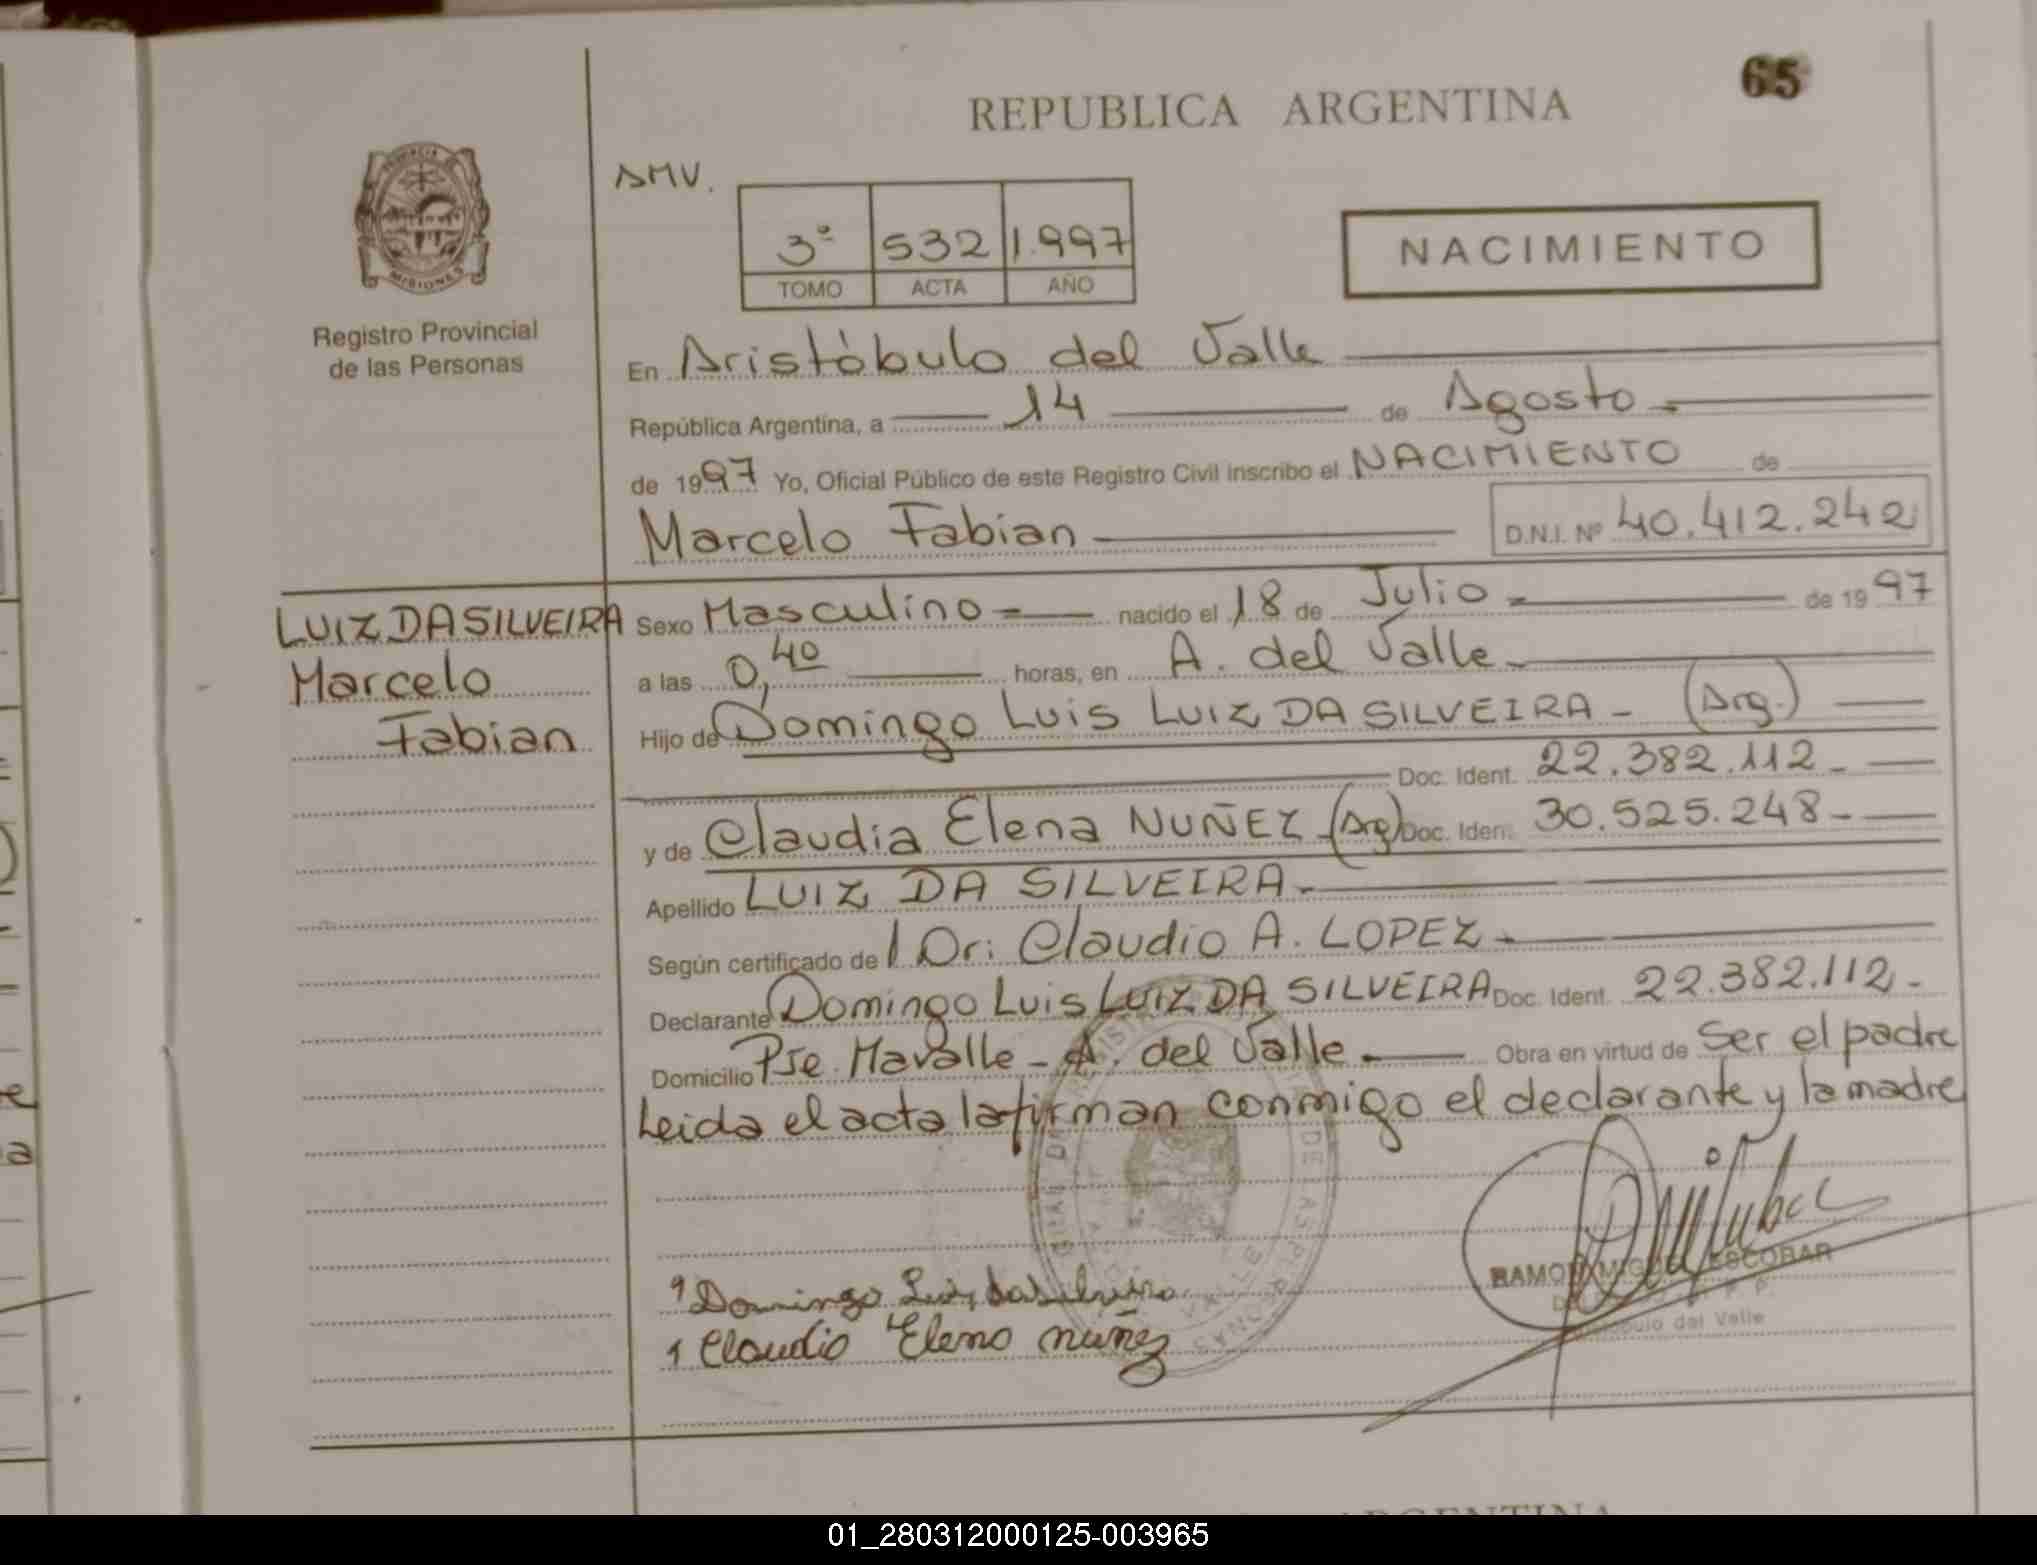 65
REPUBLICA ARGENTINA
PROVINCIA DE
MISIONES
Registro Provincial
de las Personas
AMV.
3º 532 1.997
TOMO ACTA AÑO
NACIMIENTO
En Aristóbulo del Valle
República Argentina, a 14 de Agosto
de 1997 Yo, Oficial Público de este Registro Civil inscribo el NACIMIENTO de
Marcelo Fabian D.N.I. Nº 40.412.242
LUIZ DA SILVEIRA
Marcelo
Fabian
Sexo Masculino nacido el 18 de Julio de 1997
a las 0,40 horas, en A. del Valle
Hijo de Domingo Luis LUIZ DA SILVEIRA - (Arg.)
Doc. Ident. 22.382.112
y de Claudia Elena NUÑEZ (Arg) Doc. Iden. 30.525.248
Apellido LUIZ DA SILVEIRA
Según certificado del Dr: Claudio A. LOPEZ
Declarante Domingo Luis LUIZ DA SILVEIRA Doc. Ident. 22.382.112
Domicilio Pje. Mavalle - A. del Valle Obra en virtud de ser el padre
Leida el acta la firman conmigo el declarante y la madre
Domingo Luiz da Silveira
Claudio Eleno nuñez
RAMON MIGUEL ESCOBAR
del Valle
ARGENTINA
01_280312000125-003965